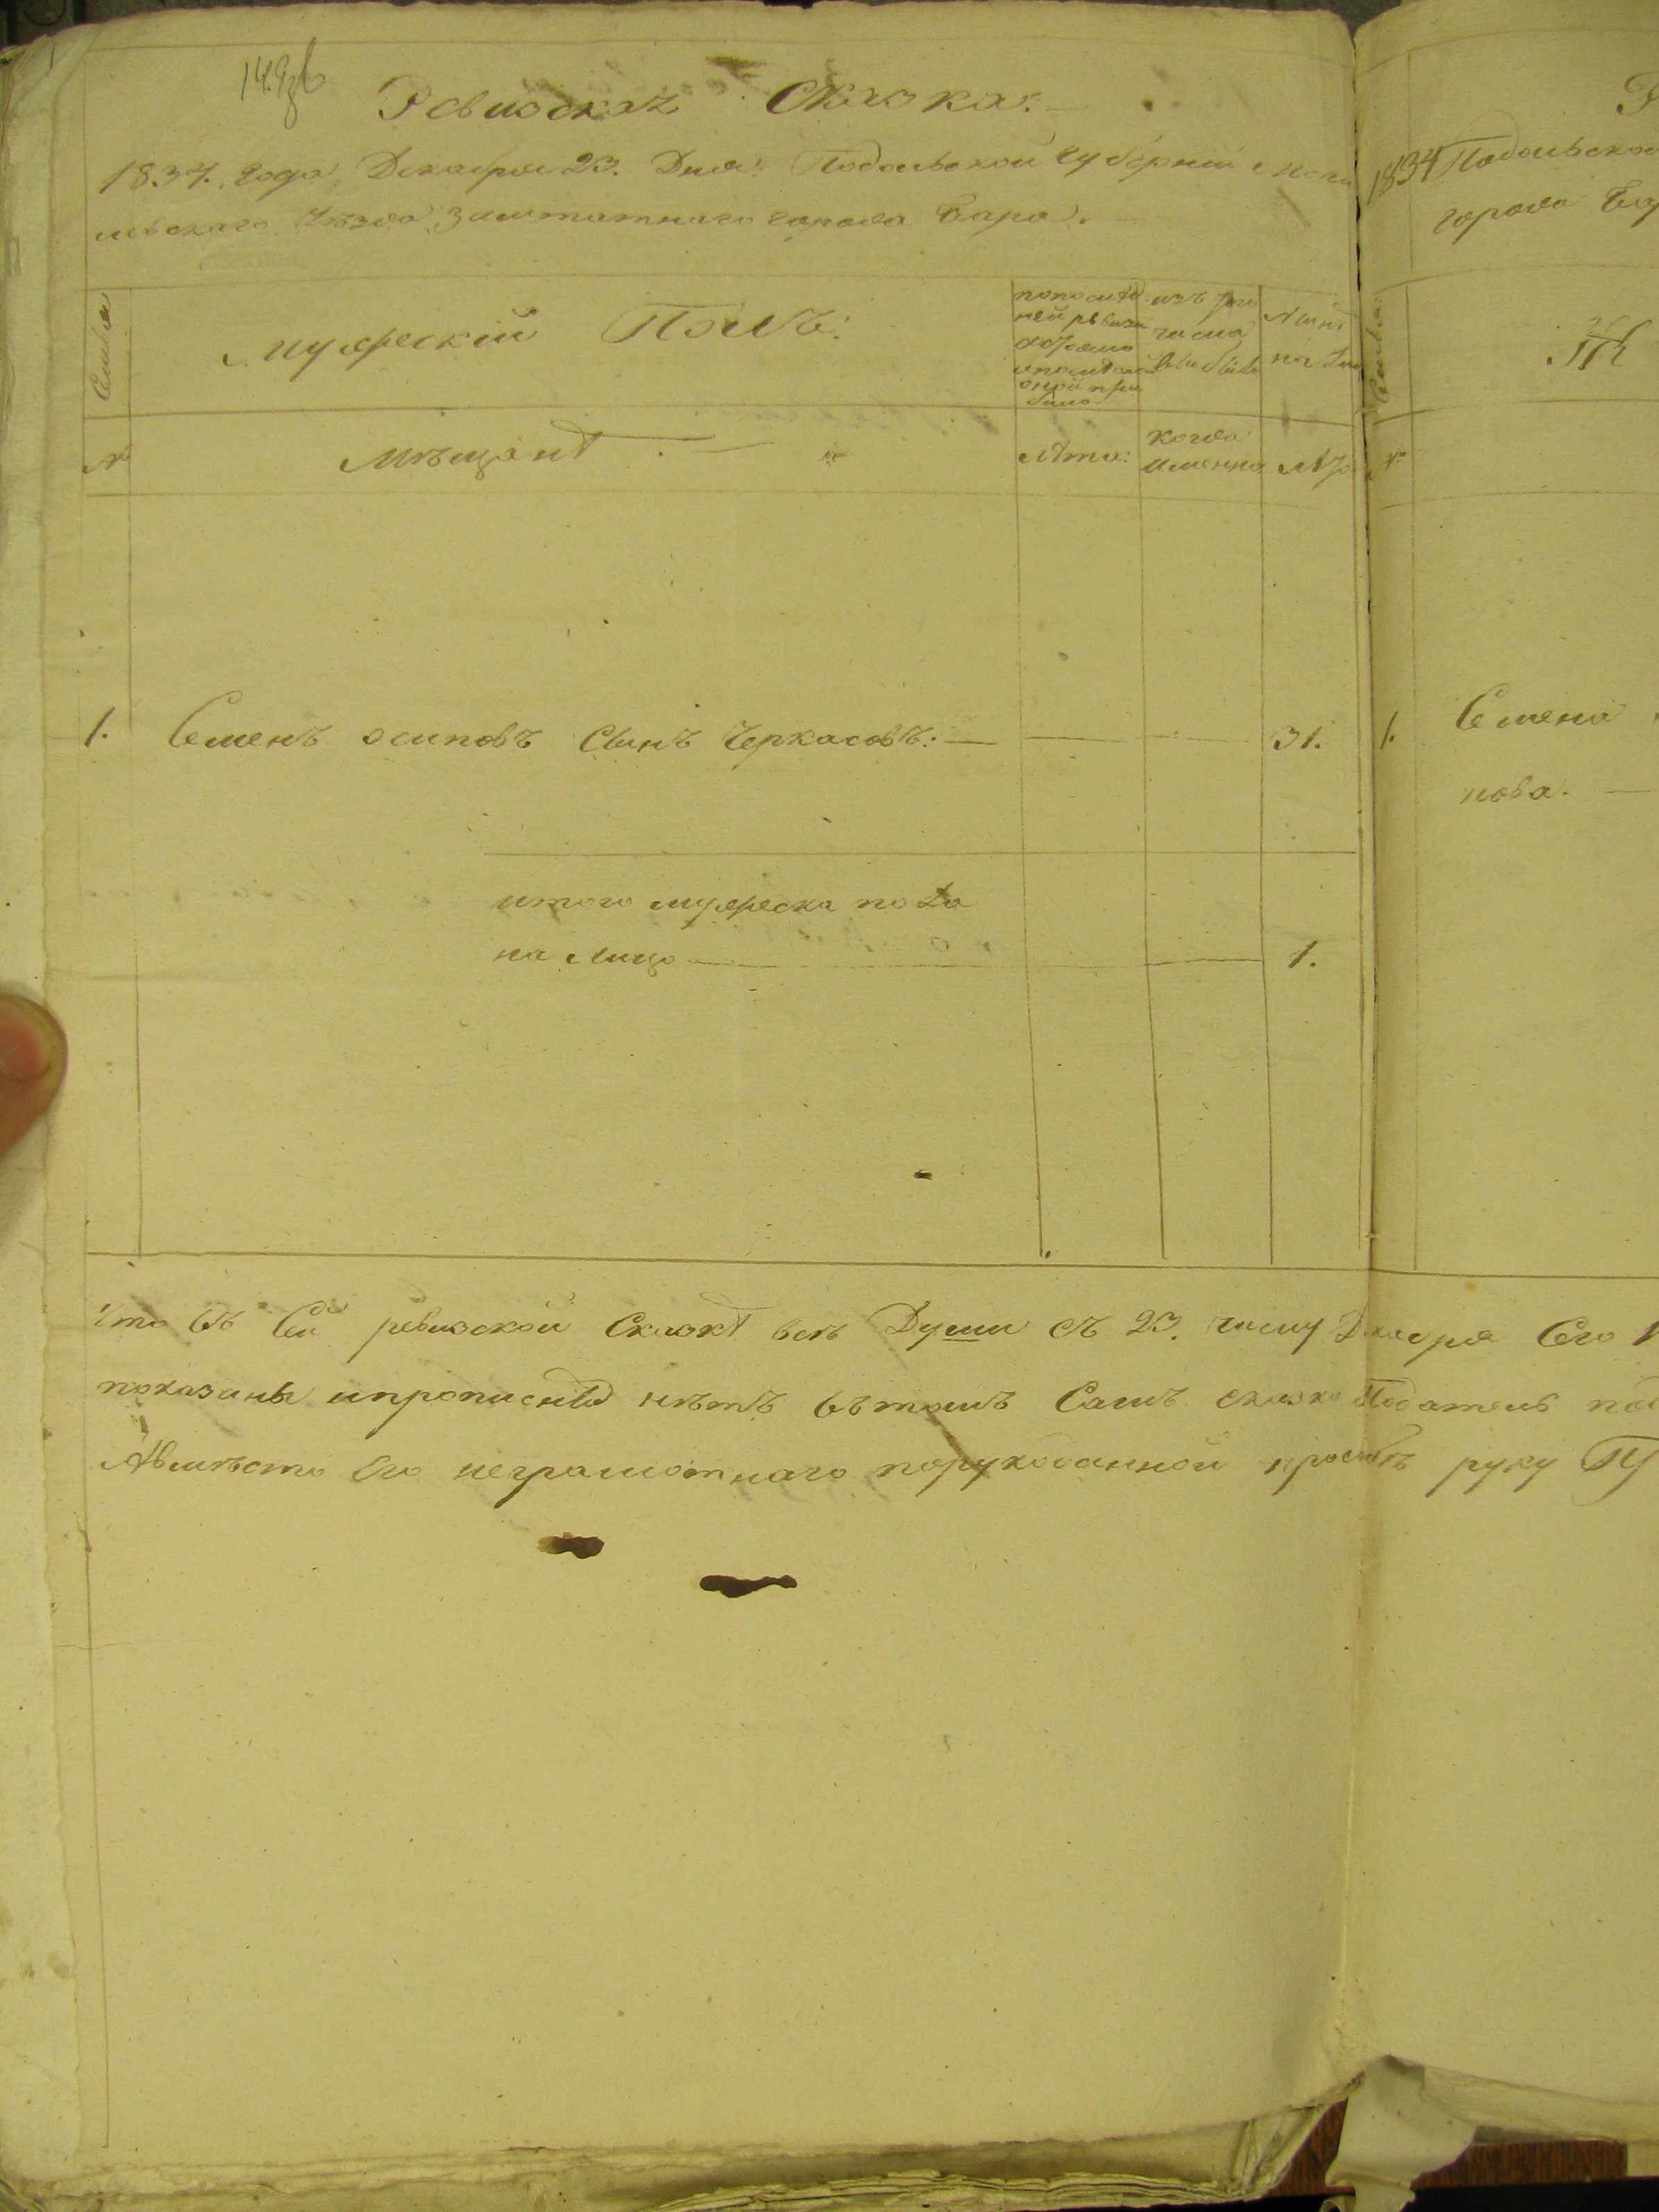 Ревизская Сказка:
1834. года Декабря 23. Дня: Подольской Губернiи Моги
льскаго Уѣзда Заштатнаго города Бара.
Семьи
мужескiй Полъ:
по послѣд
ней ревизи
состояло
и послѣ оной
при
было
изъ того
числа
выбыло
Нынѣ
на лицо
№
Мѣщанѣ
лѣта:
когда
именно
лѣта
1. Семенъ осиповъ сынъ Черкасовъ: 31.
итого мужеска пола
на лицо 1.
Что въ сей ревизской Сказкѣ всѣ Души съ 23. числу Декабря Сего
показаны и прописныхъ нѣтъ въ томъ Самъ сказко Податель
А вмѣсто его неграмотнаго по рукоданной прозбѣ руку
1834 Подольской
города Бар
Семьи
№
1. Семена
нова.